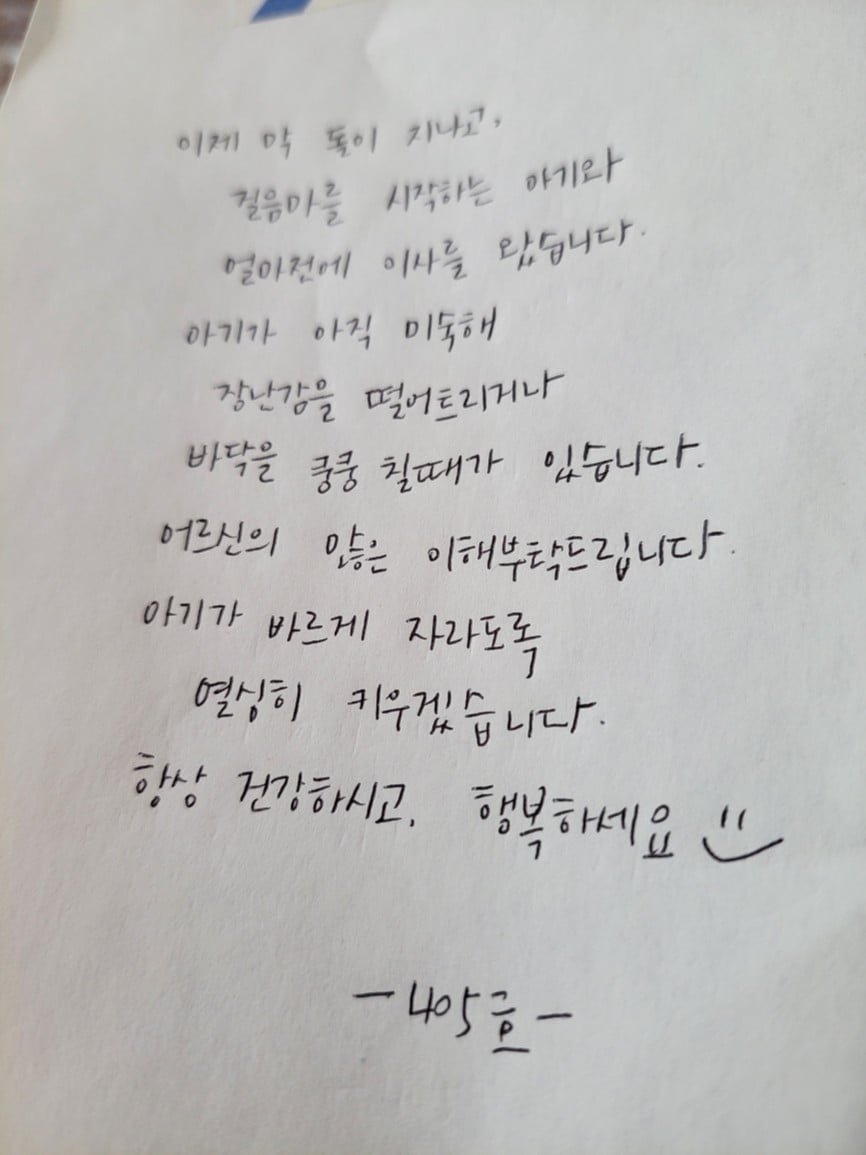 이제 막 돌이 지나고,
걸음마를 시작하는 아기와
얼마전에 이사를 왔습니다.
아기가 아직 미숙해
장난감을 떨어트리거나
바닥을 쿵쿵 칠때가 있습니다.
어르신의 많은 이해부탁드립니다.
아기가 바르게 자라도록
열심히 키우겠습니다.
항상 건강하시고, 행복하세요
- 405호 -